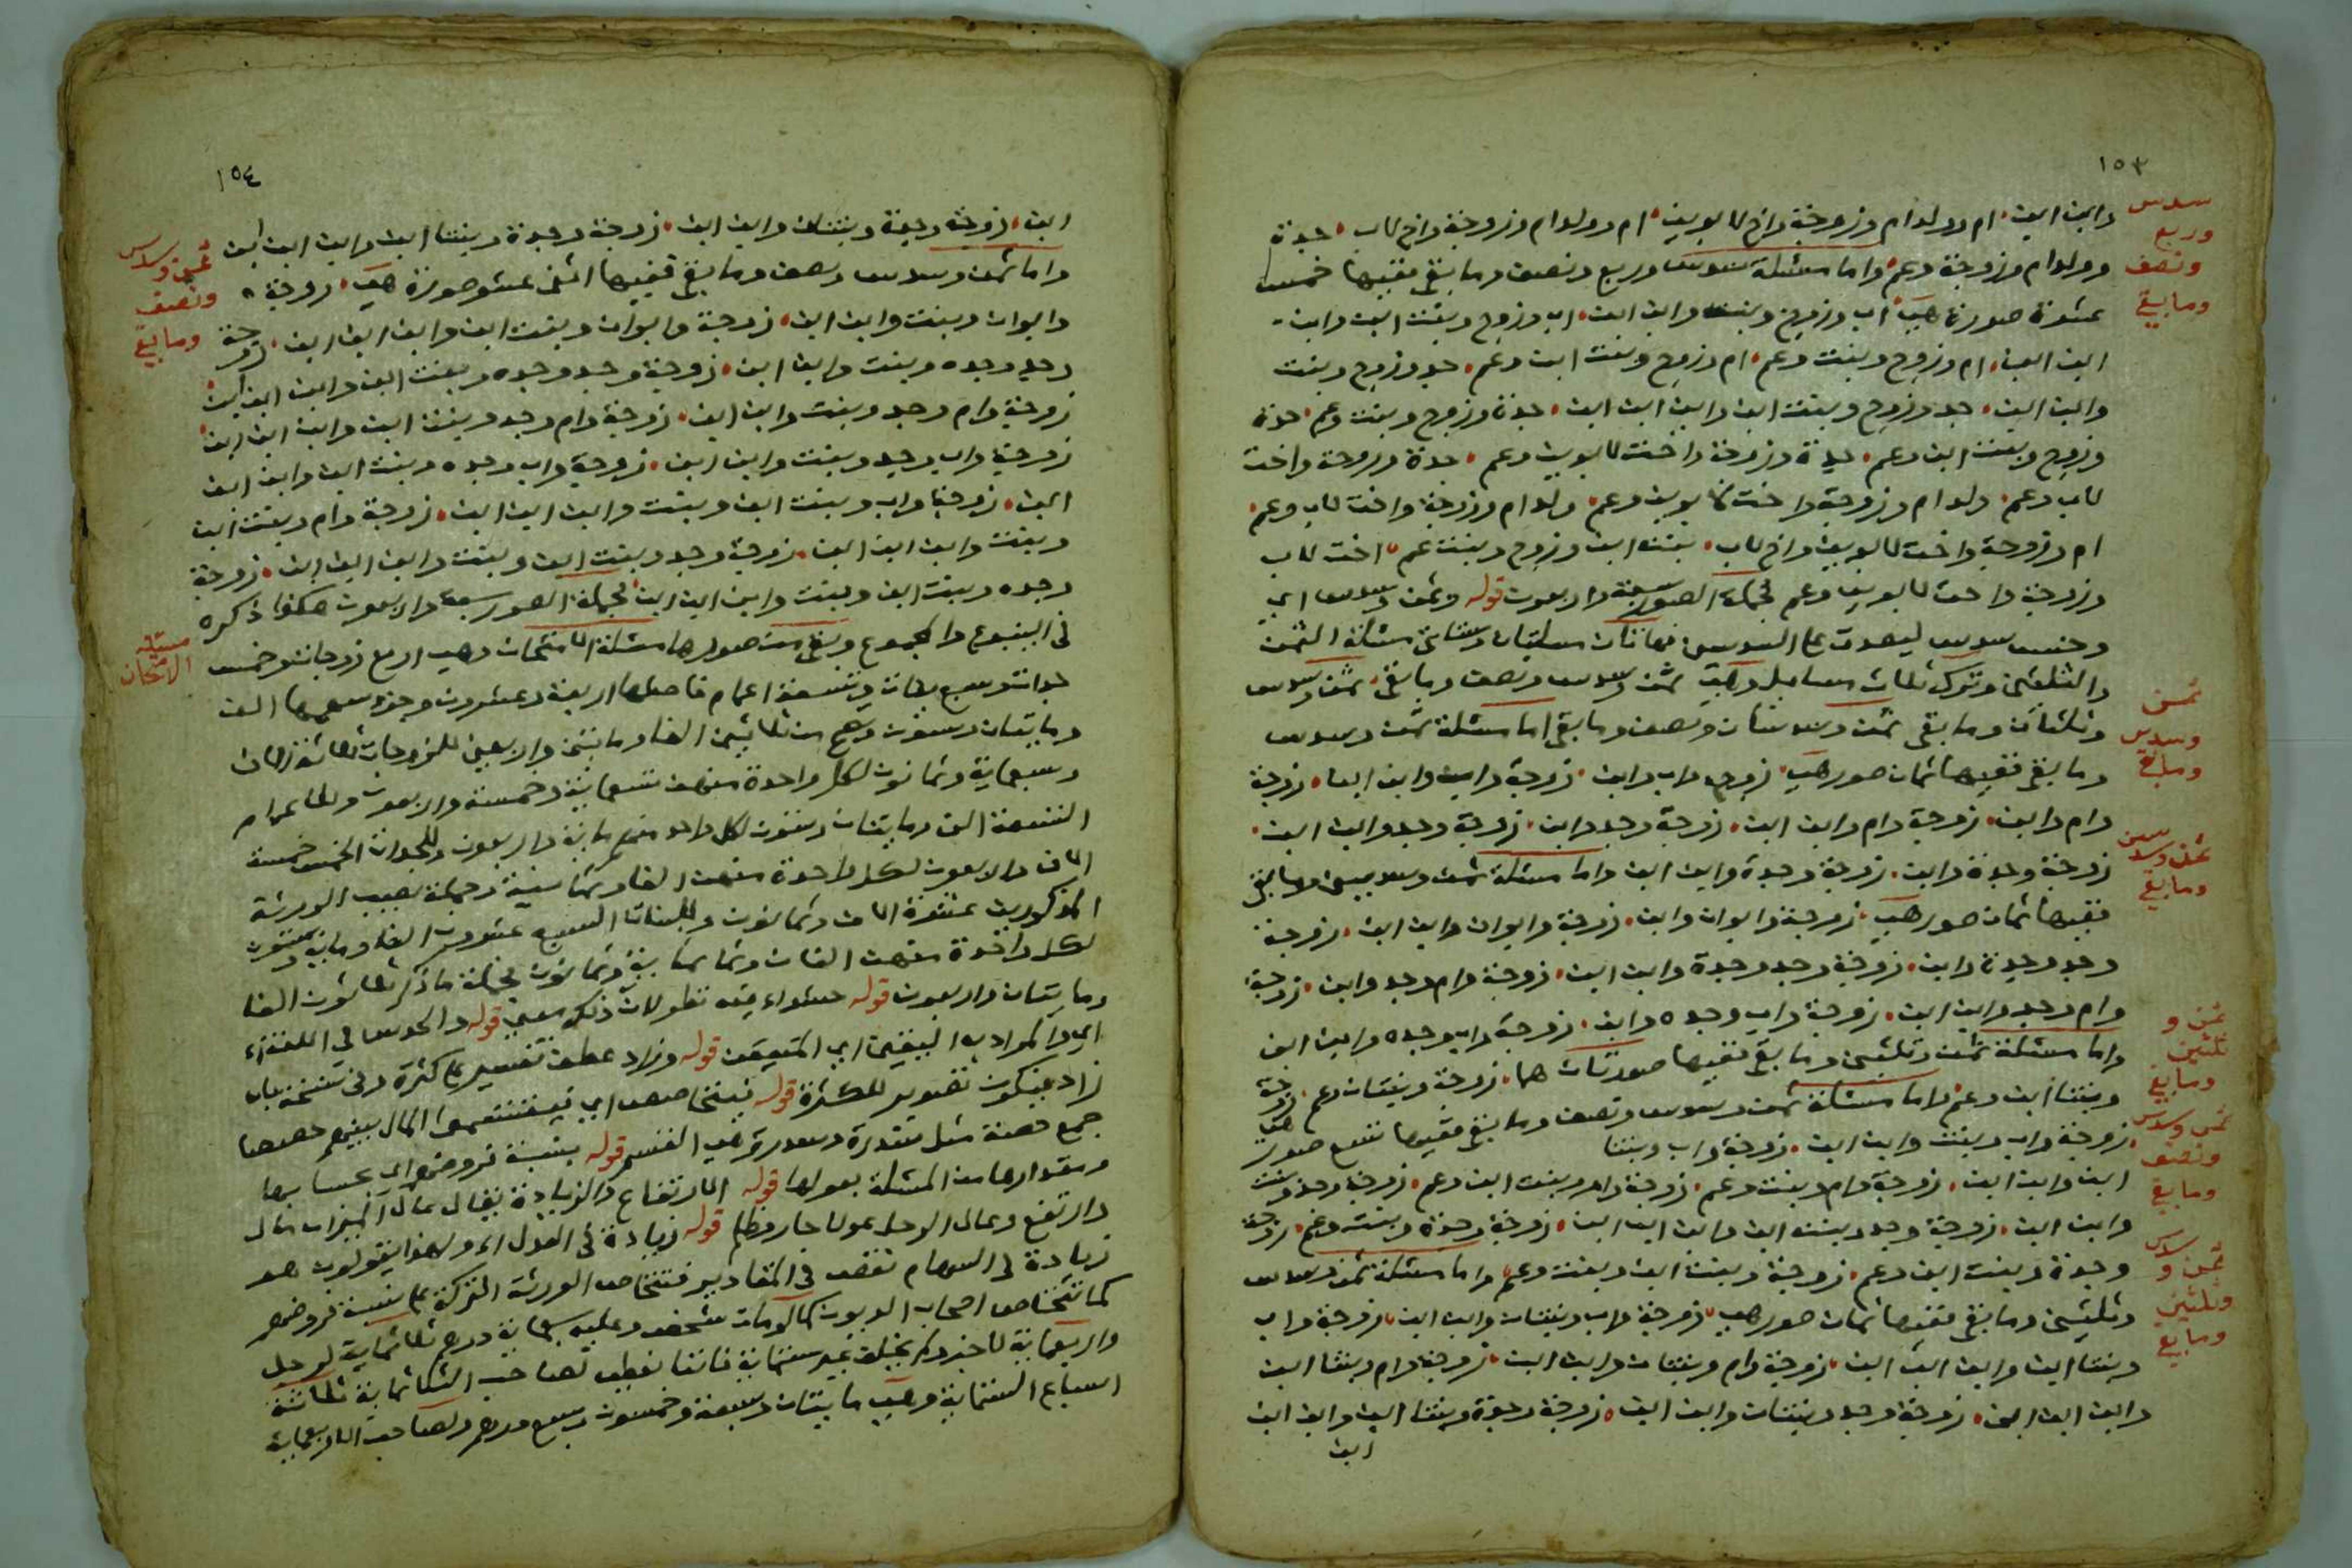 ١٥٣
سدس
وربع
ونصف
وما بقي
وابن ابن ام وولد ام وزوجة واخ لابوين ام وولد ام وزوجة واخ لاب جدة
وولد ام وزوجة وعم واما مسئلة سدس وربع ونصف وما بقي ففيها خمس
عشرة صورة هي اب وزوج وبنت وابن ابن اب وزوج وبنت ابن وابن
ابن ابن ام وزوج وبنت وعم ام وزوج وبنت ابن وعم جد وزوج وبنت
وابن ابن جد وزوج وبنت ابن وابن ابن ابن جدة وزوج وبنت وعم جدة
وزوج وبنت ابن وعم جدة وزوجة واخت لابوين وعم جدة وزوجة واخت
لاب وعم ولد ام وزوجة واخت لابوين وعم ولد ام وزوجة واخت لاب وعم
ام وزوجة واخت لابوين واخ لاب بنت ابن وزوج وبنت عم اخت لاب
وزوجة واخت لابوين وعم فجملة الصور سبعة واربعون قوله وثمن وسدس اي
وجنس سدس ليصدق على السدس
والثلثين وترك ثلاث مسايل وهي ثمن وسدس ونصف وما بقي ثمن وسدس
ثمن
وسدس
وما بقي
وثلثان وما بقي ثمن وسدسان ونصف وما بقي اما مسئلة ثمن وسدس
وما بقي ففيها ثمان صور هي زوجة واب وابن زوجة واب وابن ابن زوجة
وام وابن زوجة وام وابن ابن زوجة وجد وابن زوجة وجد وابن ابن
ثمن وسدسين
وما بقي
زوجة وجدة وابن زوجة وجدة وابن ابن واما مسئلة ثمن وسدسين وما بقي
ففيها ثمان صور هي زوجة وابوان وابن زوجة وابوان وابن ابن زوجة
وجد وجدة وابن زوجة وجد وجدة وابن ابن زوجة وام وجد وابن زوجة
وام وجد وابن ابن زوجة واب وجده وابن زوجة واب وجده وابن ابن
ثمن و
ثلثين
وما بقي
واما مسئلة ثمن وثلثين وما بقي ففيها صورتان هما زوجة وبنتان وعم زوجة
وبنتا ابن وعم واما مسئلة ثمن وسدس ونصف وما بقي ففيها تسع صور هي
ثمن وسدس
ونصف
وما بقي
زوجة واب وبنت وابن ابن زوجة واب وبنتا
ابن وابن ابن زوجة وام وبنت وعم زوجة وام وبنت ابن وعم زوجة وجد وبنت
وابن ابن زوجة وجد وبنت ابن وابن ابن ابن زوجة وجدة وبنت وعم زوجة
وجدة وبنت ابن وعم زوجة وبنت ابن وبنت وعم واما مسئلة ثمن وسدس
ثمن و سدس
وثلثين
وما بقي
وثلثين وما بقي ففيها ثمان صور هي زوجة واب وبنتان وابن ابن زوجة واب
وبنتا ابن وابن ابن ابن زوجة وام وبنتان وابن ابن زوجة وام وبنتا ابن
وابن ابن ابن زوجة وجد وبنتان وابن ابن زوجة وجدة وبنتا ابن وابن ابن
ابن
١٥٤
ابن زوجة وجدة وبنتان وابن ابن زوجة وجدة وبنتا ابن وابن ابن ابن
ثمن وسدس
ونصف
وما بقي
واما ثمن وسدسان ونصف وما بقي ففيها اثنى عشر صورة هي زوجة
وابوان وبنت وابن ابن زوجة وابوان وبنت ابن وابن ابن ابن زوجة
وجد وجده وبنت وابن ابن زوجة وجد وجده وبنت ابن وابن ابن ابن
زوجة وام وجد وبنت وابن ابن زوجة وام وجد وبنت ابن وابن ابن ابن
زوجة واب وجده وبنت وابن ابن زوجة واب وجده وبنت ابن وابن ابن
ابن زوجة واب وبنت ابن وبنت وابن ابن ابن زوجة وام وبنت ابن
وبنت وابن ابن ابن زوجة وجد وبنت ابن وبنت وابن ابن ابن زوجة
وجده وبنت ابن وبنت وابن ابن ابن فجملة الصور سبعة واربعون هكذا ذكره
مسئلة
الامتحان
في الينبوع والمجموع وبقي من صورها مسئلة الامتحان وهي اربع زوجات وخمس
جدات وسبع بنات وتسعة اعمام فاصلها اربعة وعشرون وجزء سهمها الف
ومايتان وستون وتصح من ثلاثين الفا ومايتين واربعين للزوجات ثلاثة الاف
وسبعماية وثمانون لكل واحدة منهن تسعماية وخمسة واربعون وللاعمام
التسعة الف ومايتان وستون لكل واحد منهم ماية واربعون وللجدات الخمس خمسة
الاف واربعون لكل واحدة منهن الف وثمانية وجملة نصيب الورثة
المذكورين عشرة الاف وثمانون وللبنات السبع عشرون الفا وماية وستون
لكل واحدة منهن الفان وثمانماية وثمانون فجملة ما ذكر ثلاثون الفا
ومايتان واربعون قوله سواء فيه تطولات ذلك معي قوله والحدس في اللغة
اي والمراد به اليقين اي المتيقن قوله وزاد عطف تفسير على كثرة وفي نسخة بان
زاد فيكون تصوير للكثرة قوله فيتحاصصون اي فيقتسمون المال بينهم حصصا
جمع حصة مثل سدرة وسدر وهي القسم قوله بنسبة فروضهم اي بحسابها
ومقدارها من المسئلة بعولها قوله الارتفاع والزيادة يقال عال الميزان مال
وارتفع وعال الرجل عولا جار وظلم قوله زيادة في العول اي ولهذا يقولون هو
زيادة في السهام نقص في المقادير فتتحاصص الورثة التركة على نسبة فروضهم
كما تتحاصص اصحاب الديون كما لو مات شخص وعليه سبعماية درهم ثلاثماية لرجل
واربعماية لاخر ولم يخلف غير ستماية فاننا نعطي لصاحب الثلاثماية ثلاثة
اسباع الستماية وهي مايتان وسبعة وخمسون وسبع درهم ولصاحب الاربعماية